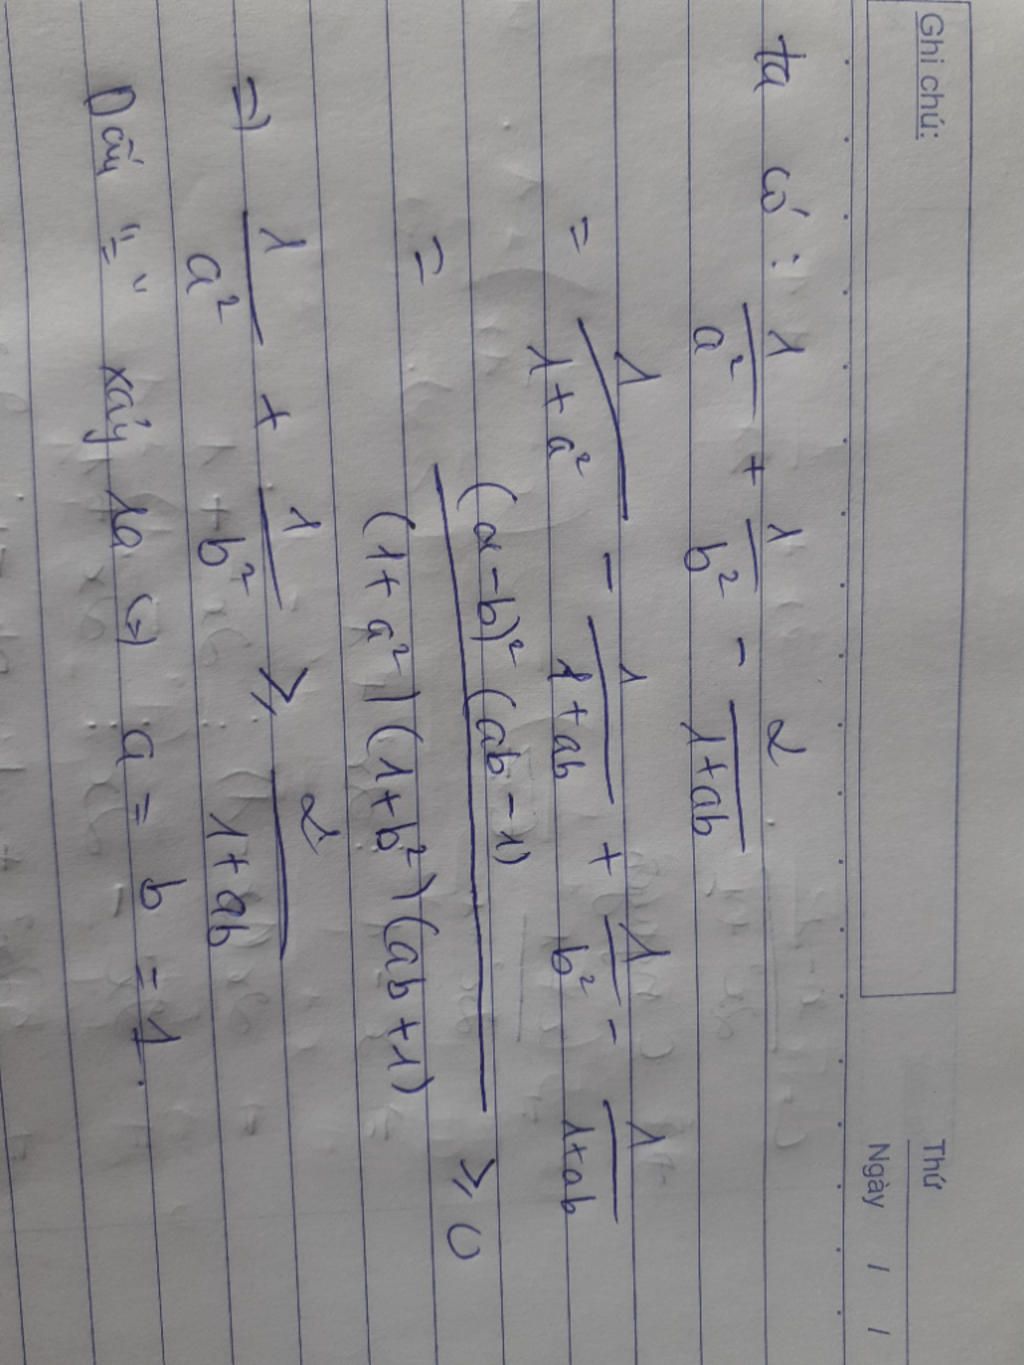 Ghi chú:
Thứ
Ngày / /
ta có: 1/a² + 1/b² - 2/1+ab
= 1/1+a² - 1/1+ab + 1/b² - 1/1+ab
= (a-b)² (ab-1)/(1+a²)(1+b²)(ab+1) ⩾ 0
=) 1/a² + 1/+b² ⩾ 2/1+ab
Dấu "=" xảy ra (=) a = b = 1.